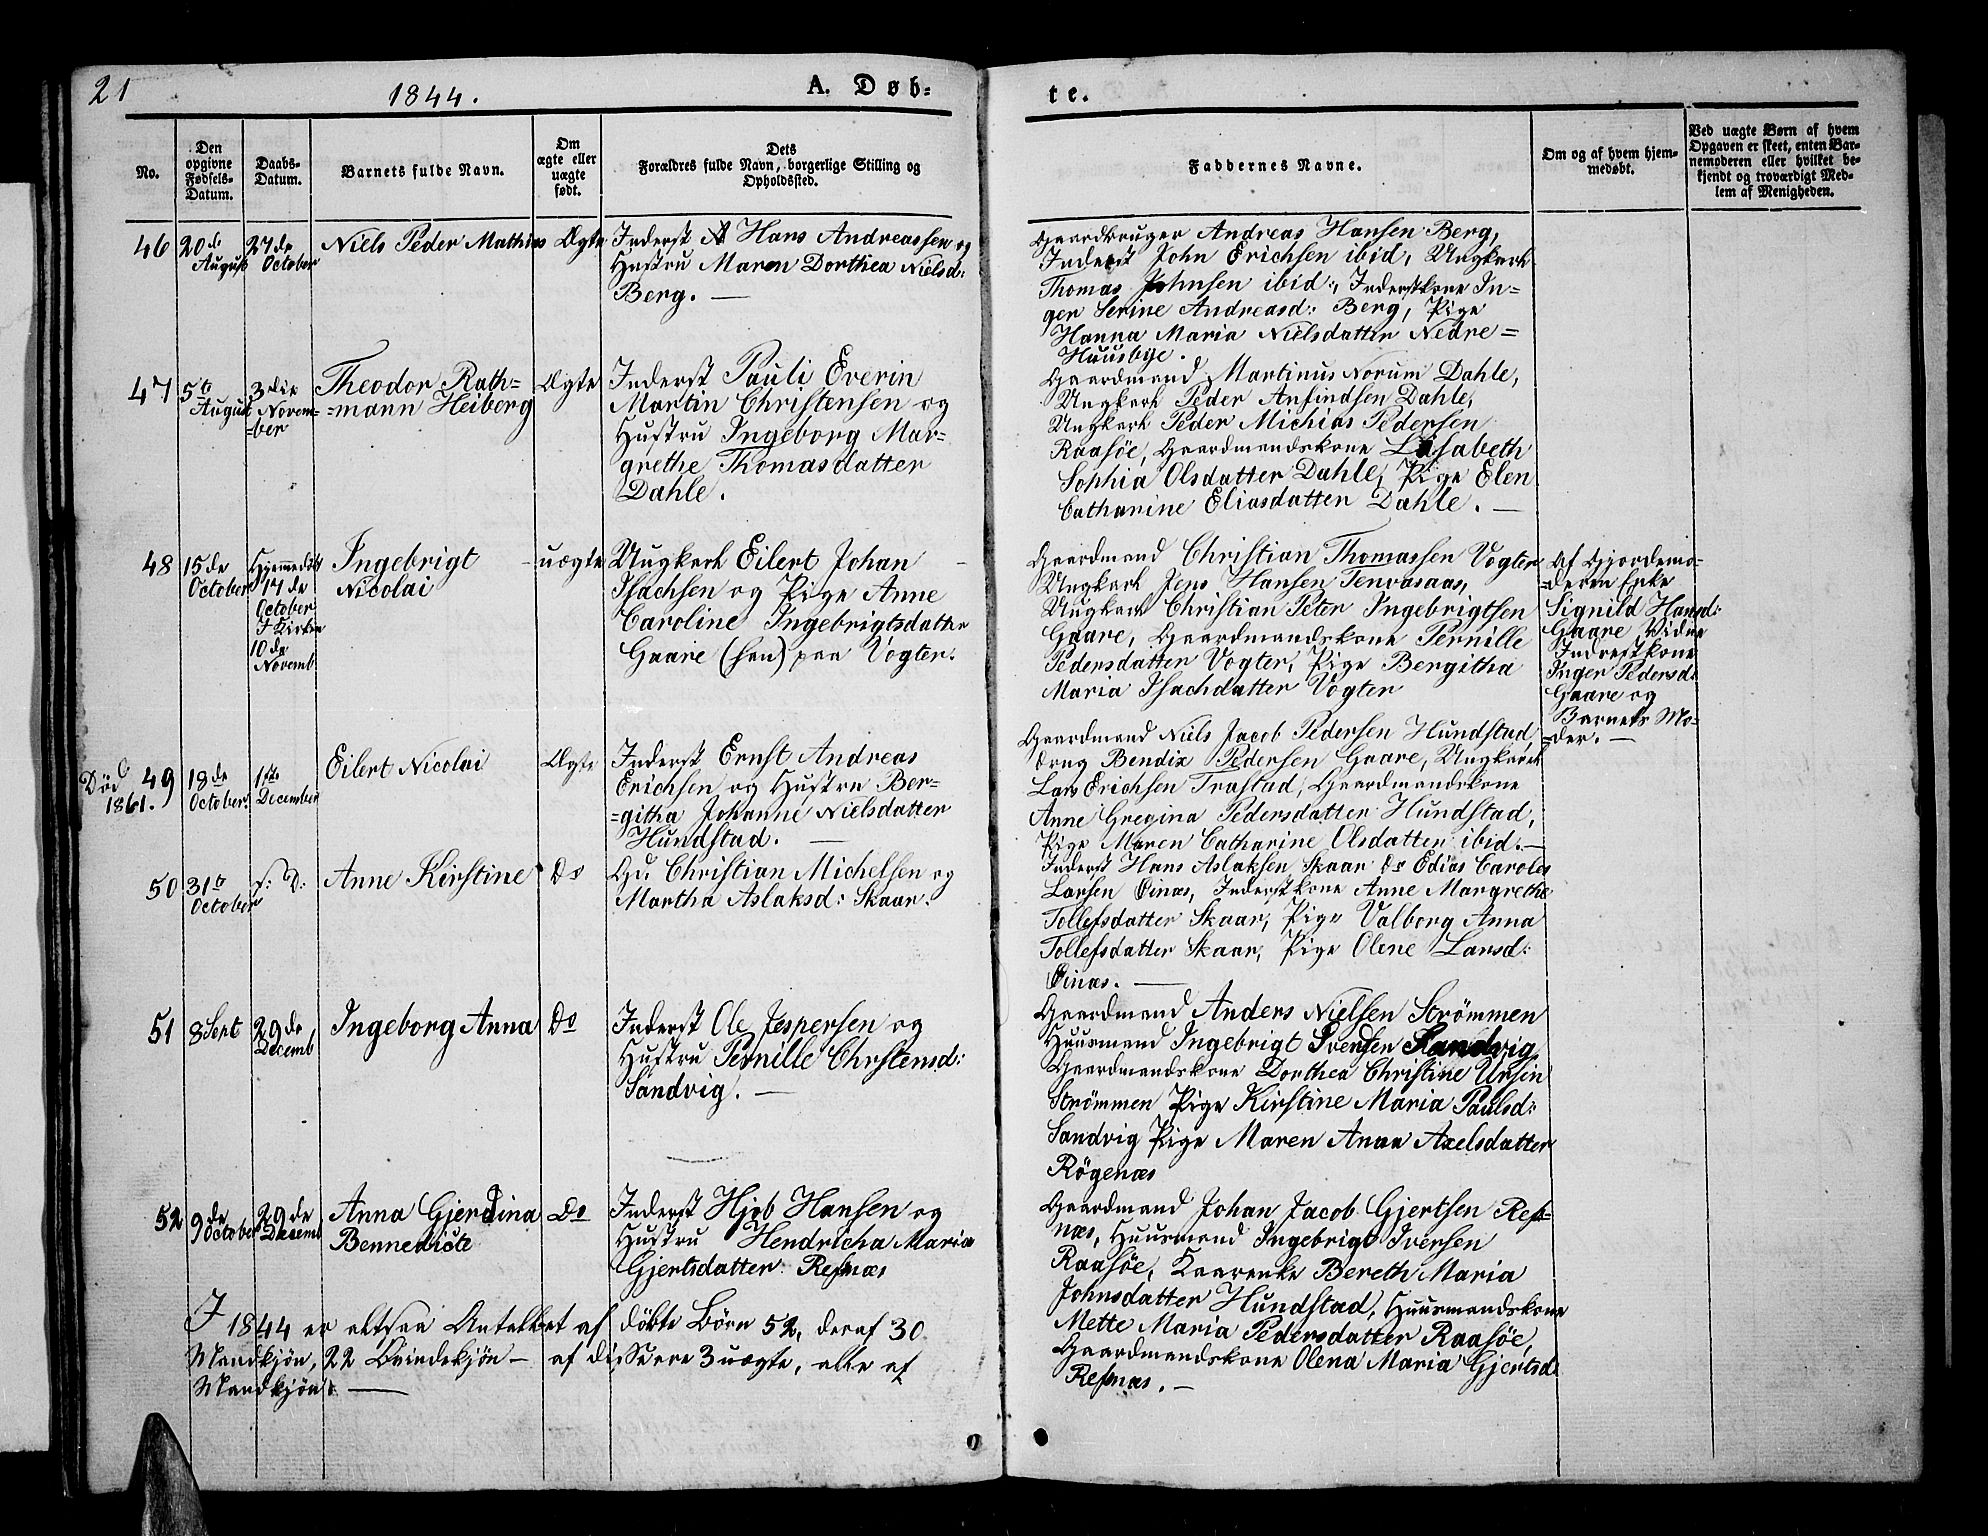 21
1844.
A. Døb=
te.
No.
Den opgivne Fødsels-Datum.
Daabs-Datum.
Barnets fulde Navn.
Om ægte eller uægte født.
Dets
Forældres fulde Navn, borgerlige Stilling og
Opholdssted.
Faddernes Navne.
Om og af hvem hjem-
medøbt.
Ved uægte Børn af hvem
Opgaven er skeet, enten Bar-
nemoderen eller hvilket be-
kjendt og troværdigt Med-
lem af Menigheden.
46 20de August 27de October Niels Peder Mathias Ægte
Inderst Hans Andreassen og
Hustru Maren Dorthea Nielsd:
Berg. —
Gaardbruger Andreas Hansen Berg,
Inderst John Erichsen ibid, Ungkarl
Thomas Johnsen ibid:, Inderstkone In=
ger Serine Andreasd: Berg, Pige
Hanna Maria Nielsdatter Nedre=
Huusbye.
47 5te August 3die Novem=ber Theodor Rath=
=mann Heiberg Ægte
Inderst Pauli Everin
Martin Christensen og
Hustru Ingeborg Mar=
grethe Thomasdatter
Dahle.
Gaardmand Martinus Norum Dahle,
Ungkarl Peder Anfindsen Dahle,
Ungkarl Peder Michias Pedersen
Raasöe, Gaardmandskone Lisabeth
Sophia Olsdatter Dahle, Pige Elen
Catharine Eliasdatter Dahle. —
48 15de October Hjemmedöbt 17de October I Kirken 10de Novemb. Ingebrigt
Nicolai uægte
Ungkarl Eilert Johan
Isachsen og Pige Anne
Caroline Ingebrigtsdatter
Gaare (han) paa Vogter.
Gaardmand Christian Thomassen Vogter
Ungkarl Jens Hansen Tenvasaas,
Ungkarl Christian Peter Ingebrigtsen
Gaare, Gaardmandskone Pernille
Pedersdatter Vogter, Pige Bergitha
Maria Isachdatter Vogter
Af Gjordemo-
=deren Enke
Signild Hansd:
Gaare, Vidne
Inderstkone
Inger Pedersd:
Gaare og
Barnets Mo-
=der. —
Död 1861.
49 18de October 1ste December Eilert Nicolai Ægte
Inderst Ernst Andreas
Erichsen og Hustru Ber=
=githa Johanne Nielsdatter
Hundstad. —
Gaardmand Niels Jacob Pedersen Hundstad,
Dreng Bendix Pedersen Gaare, Ungkarl
Lars Erichsen Trastad, Gaardmandskone
Anne Gregina Pedersdatter Hundstad,
Pige Maren Catharine Olsdatter ibid. —
50 31te October s: D: Anne Kirstine Do
Gd. Christian Michelsen og
Martha Aslaksd: Skaar.
Inderst Hans Aslaksen Skaar Do Edias Caroles
Larsen Einæs, Inderstkone Anne Margrethe
Tollefsdatter Skaar, Pige Valborg Anna
Tollefsdatter Skaar, Pige Olene Larsd:
Einæs. —
51 8 Sept 29de Decemb Ingeborg Anna Do
Inderst Ole Jespersen og
Hustru Pernille Chrstensd:
Sandvig. —
Gaardmand Anders Nielsen Strömmen
Huusmand Ingebrigt Svensen Sandvig
Gaardmandskone Dorthea Christine Ursin
Strömmen Pige Kirstine Maria Paulsd:
Sandvig Pige Maren Anna Axelsdatter
Rögenæs
52 9de October 29de Decemb Anna Gjerdina
Bennedicte Do
Inderst Hjob Hansen og
Hustru Hendricha Maria
Gjertsdatter Refsnæs
Gaardmand Johan Jacob Gjertsen Refs=
næs, Huusmand Ingebrigt Iversen
Raasöe, Kaarenke Bereth Maria
Johnsdatter Hundstad, Huusmandskone
Mette Maria Pedersdatter Raasöe,
Gaardmandskone Olena Maria Gjertsd:
Refsnæs. —
I 1844 er altsaa Antallet af döbte Börn 52, deraf 30
Mandkjön, 22 Qvindekjön — af disse ere 3 uægte, alle af
Mandkjön. —